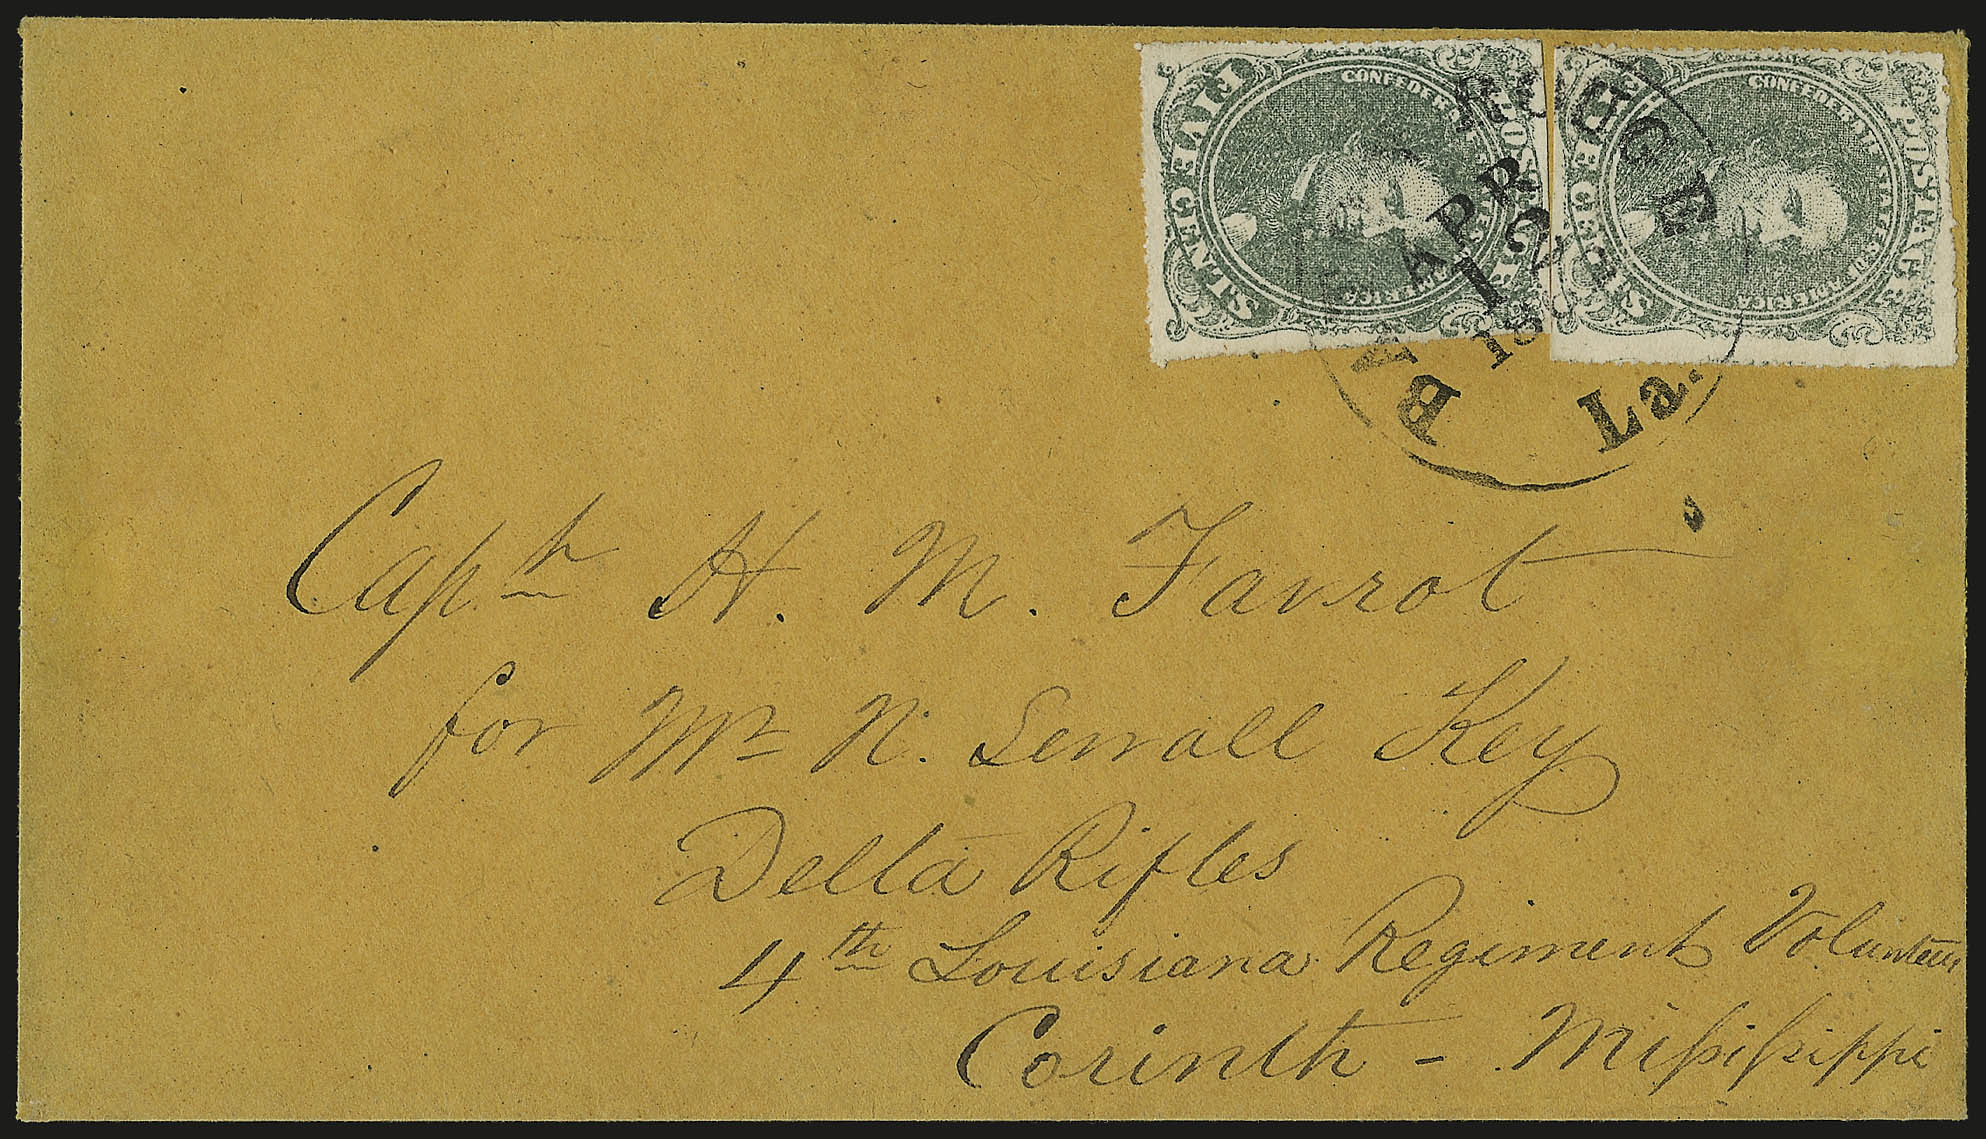 FIVE CENTS
CONFEDERATE STATES
OF AMERICA
POSTAGE
FIVE CENTS
CONFEDERATE STATES
OF AMERICA
POSTAGE
BA ROUGE
La.
APR
12
Capt. H. M. Favrot
for Mr N. Sewall Key
Delta Rifles
4th Louisiana Regiment Volunteers
Corinth - Mississippi